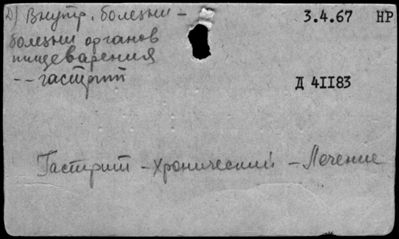 Д) Внутр. болезни –
3.4.67 НР
болезни органов
пищеварения
-- гастрит
Д 41183
Гастрит – хронический – Лечение